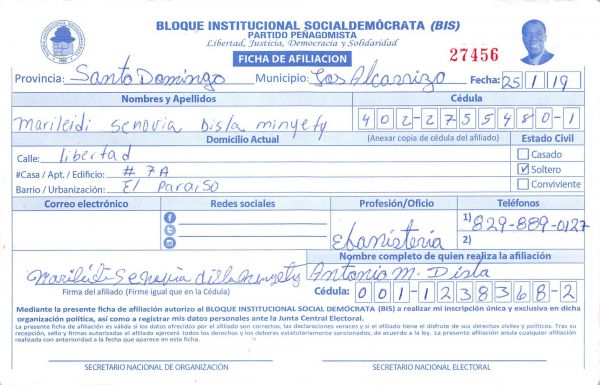 BLOQUE INSTITUCIONAL SOCIALDEMÓCRATA (BIS)
PARTIDO PEÑAGOMISTA
Libertad, Justicia, Democracia y Solidaridad
FICHA DE AFILIACION
27456
Provincia: Santo Domingo Municipio: Los Alcarrizo Fecha: 25/1/19
Nombres y Apellidos Cédula
Marileidi Senovia Disla minyety 402-2755480-1
Domicilio Actual (Anexar copia de cédula del afiliado) Estado Civil
Calle: libertad Casado
#Casa / Apt. / Edificio: # 7A Soltero
Barrio / Urbanización: El Paraiso Conviviente
Correo electrónico Redes sociales Profesión/Oficio Teléfonos
Ebanisteria 1) 829-889-0127
2)
Nombre completo de quien realiza la afiliación
Marileidi Senovia disla minyety Antonio M. Disla
Firma del afiliado (Firme igual que en la Cédula) Cédula: 001-1238368-2
Mediante la presente ficha de afiliación autorizo al BLOQUE INSTITUCIONAL SOCIAL DEMÓCRATA (BIS) a realizar mi inscripción única y exclusiva en dicha
organización política, así como a registrar mis datos personales ante la Junta Central Electoral.
La presente ficha de afiliación es válida si los datos ofrecidos por el afiliado son correctos, las declaraciones veraces y si el afiliado tiene el disfrute de sus derechos civiles y políticos. Tras su
recepción, sello y firmas autorizadas el afiliado ejercerá todos los derechos y los deberes estatutariamente sancionados, de acuerdo a la ley. La presente afiliación anula cualquier afiliación
realizada con anterioridad a la fecha que aparece en esta ficha.
SECRETARIO NACIONAL DE ORGANIZACIÓN SECRETARIO NACIONAL ELECTORAL